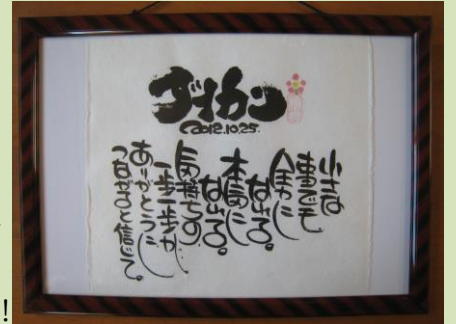 ダイカン
2012.10.25.
小さな
事でも
全力に
なれる。
本気に
なれる。
気持ちの
一歩一歩が
ありがとうに
つながると信じて。
!